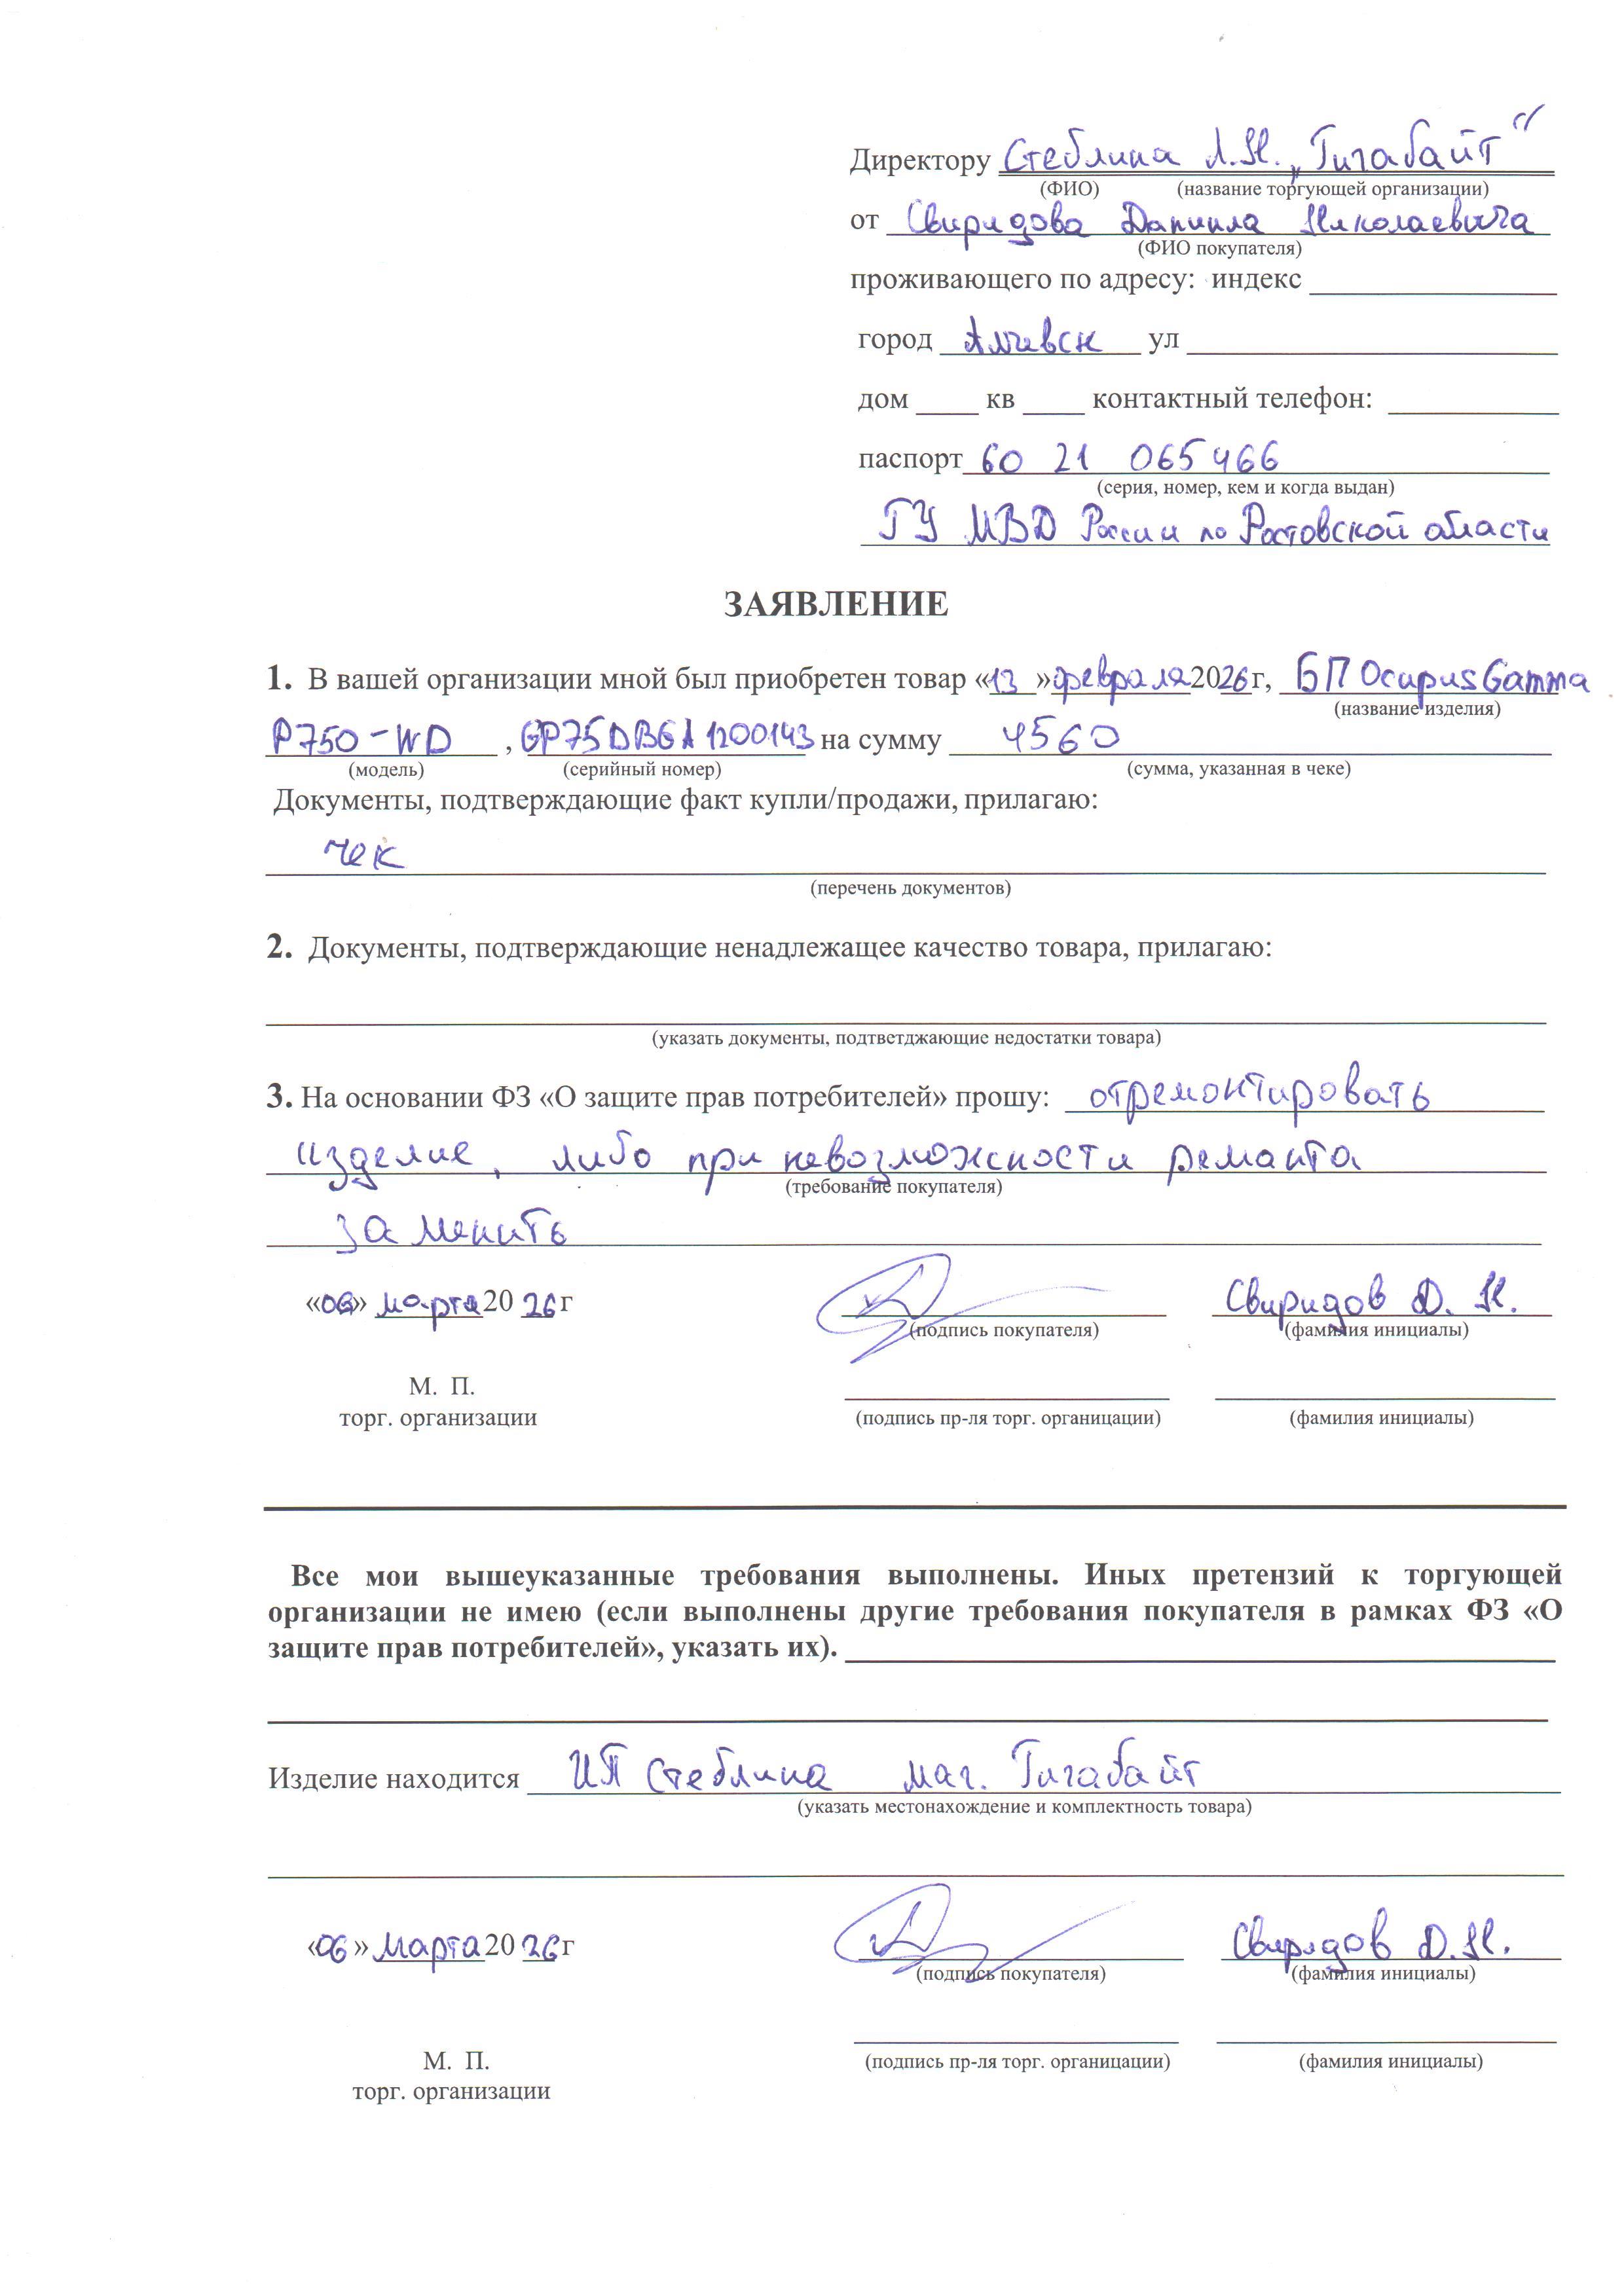 Директору Стеблина Л.Н. „Гигабайт“
(ФИО) (название торгующей организации)
от Свиридова Даниила Николаевича
(ФИО покупателя)
проживающего по адресу: индекс
город Алчевск ул
дом кв контактный телефон:
паспорт 60 21 065466
(серия, номер, кем и когда выдан)
ГУ МВД России по Ростовской области
ЗАЯВЛЕНИЕ
1. В вашей организации мной был приобретен товар «13» февраля 2026 г, БП Ocypus Gamma
(название изделия)
P750-WD , GP75DBGA1200143 на сумму 4560
(модель) (серийный номер) (сумма, указанная в чеке)
Документы, подтверждающие факт купли/продажи, прилагаю:
чек
(перечень документов)
2. Документы, подтверждающие ненадлежащее качество товара, прилагаю:
(указать документы, подтветджающие недостатки товара)
3. На основании ФЗ «О защите прав потребителей» прошу: отремонтировать
изделие, либо при невозможности ремонта
(требование покупателя)
заменить
«06» марта 20 26 г Свиридов Д. Н.
(подпись покупателя) (фамилия инициалы)
М. П.
торг. организации (подпись пр-ля торг. органицации) (фамилия инициалы)
Все мои вышеуказанные требования выполнены. Иных претензий к торгующей
организации не имею (если выполнены другие требования покупателя в рамках ФЗ «О
защите прав потребителей», указать их).
Изделие находится ИП Стеблина маг. Гигабайт
(указать местонахождение и комплектность товара)
«06» Марта 20 26 г Свиридов Д.Н.
(подпись покупателя) (фамилия инициалы)
М. П. (подпись пр-ля торг. органицации) (фамилия инициалы)
торг. организации